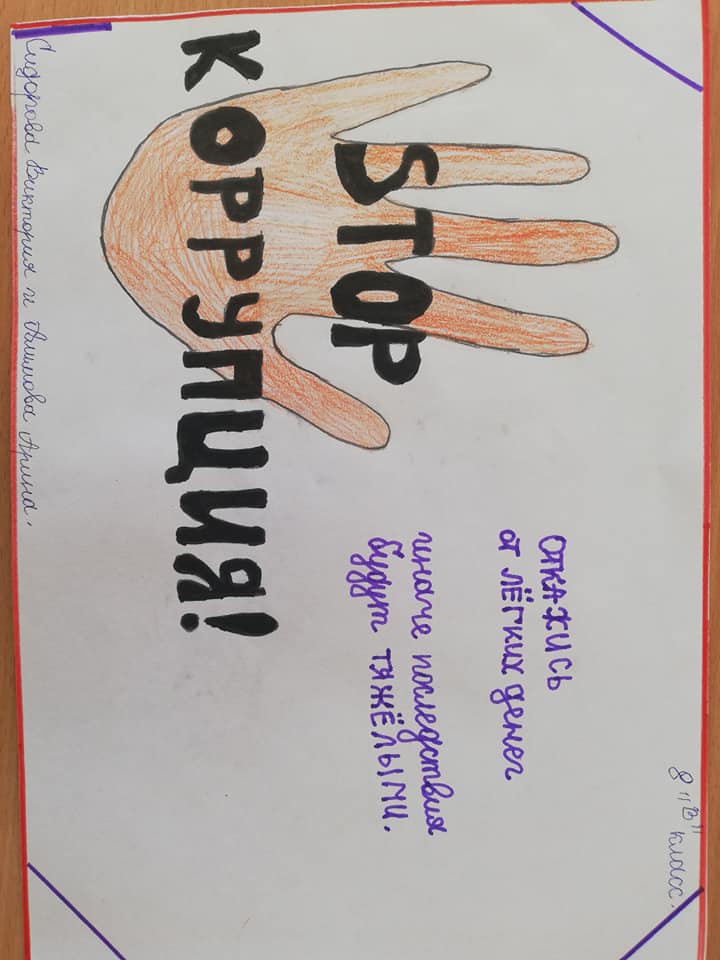 8 "В" класс.
Откажись
от лёгких денег
иначе последствия
будут тяжёлыми.
STOP
КОРРУПЦИЯ!
Сидорова Виктория и Алимова Арина.